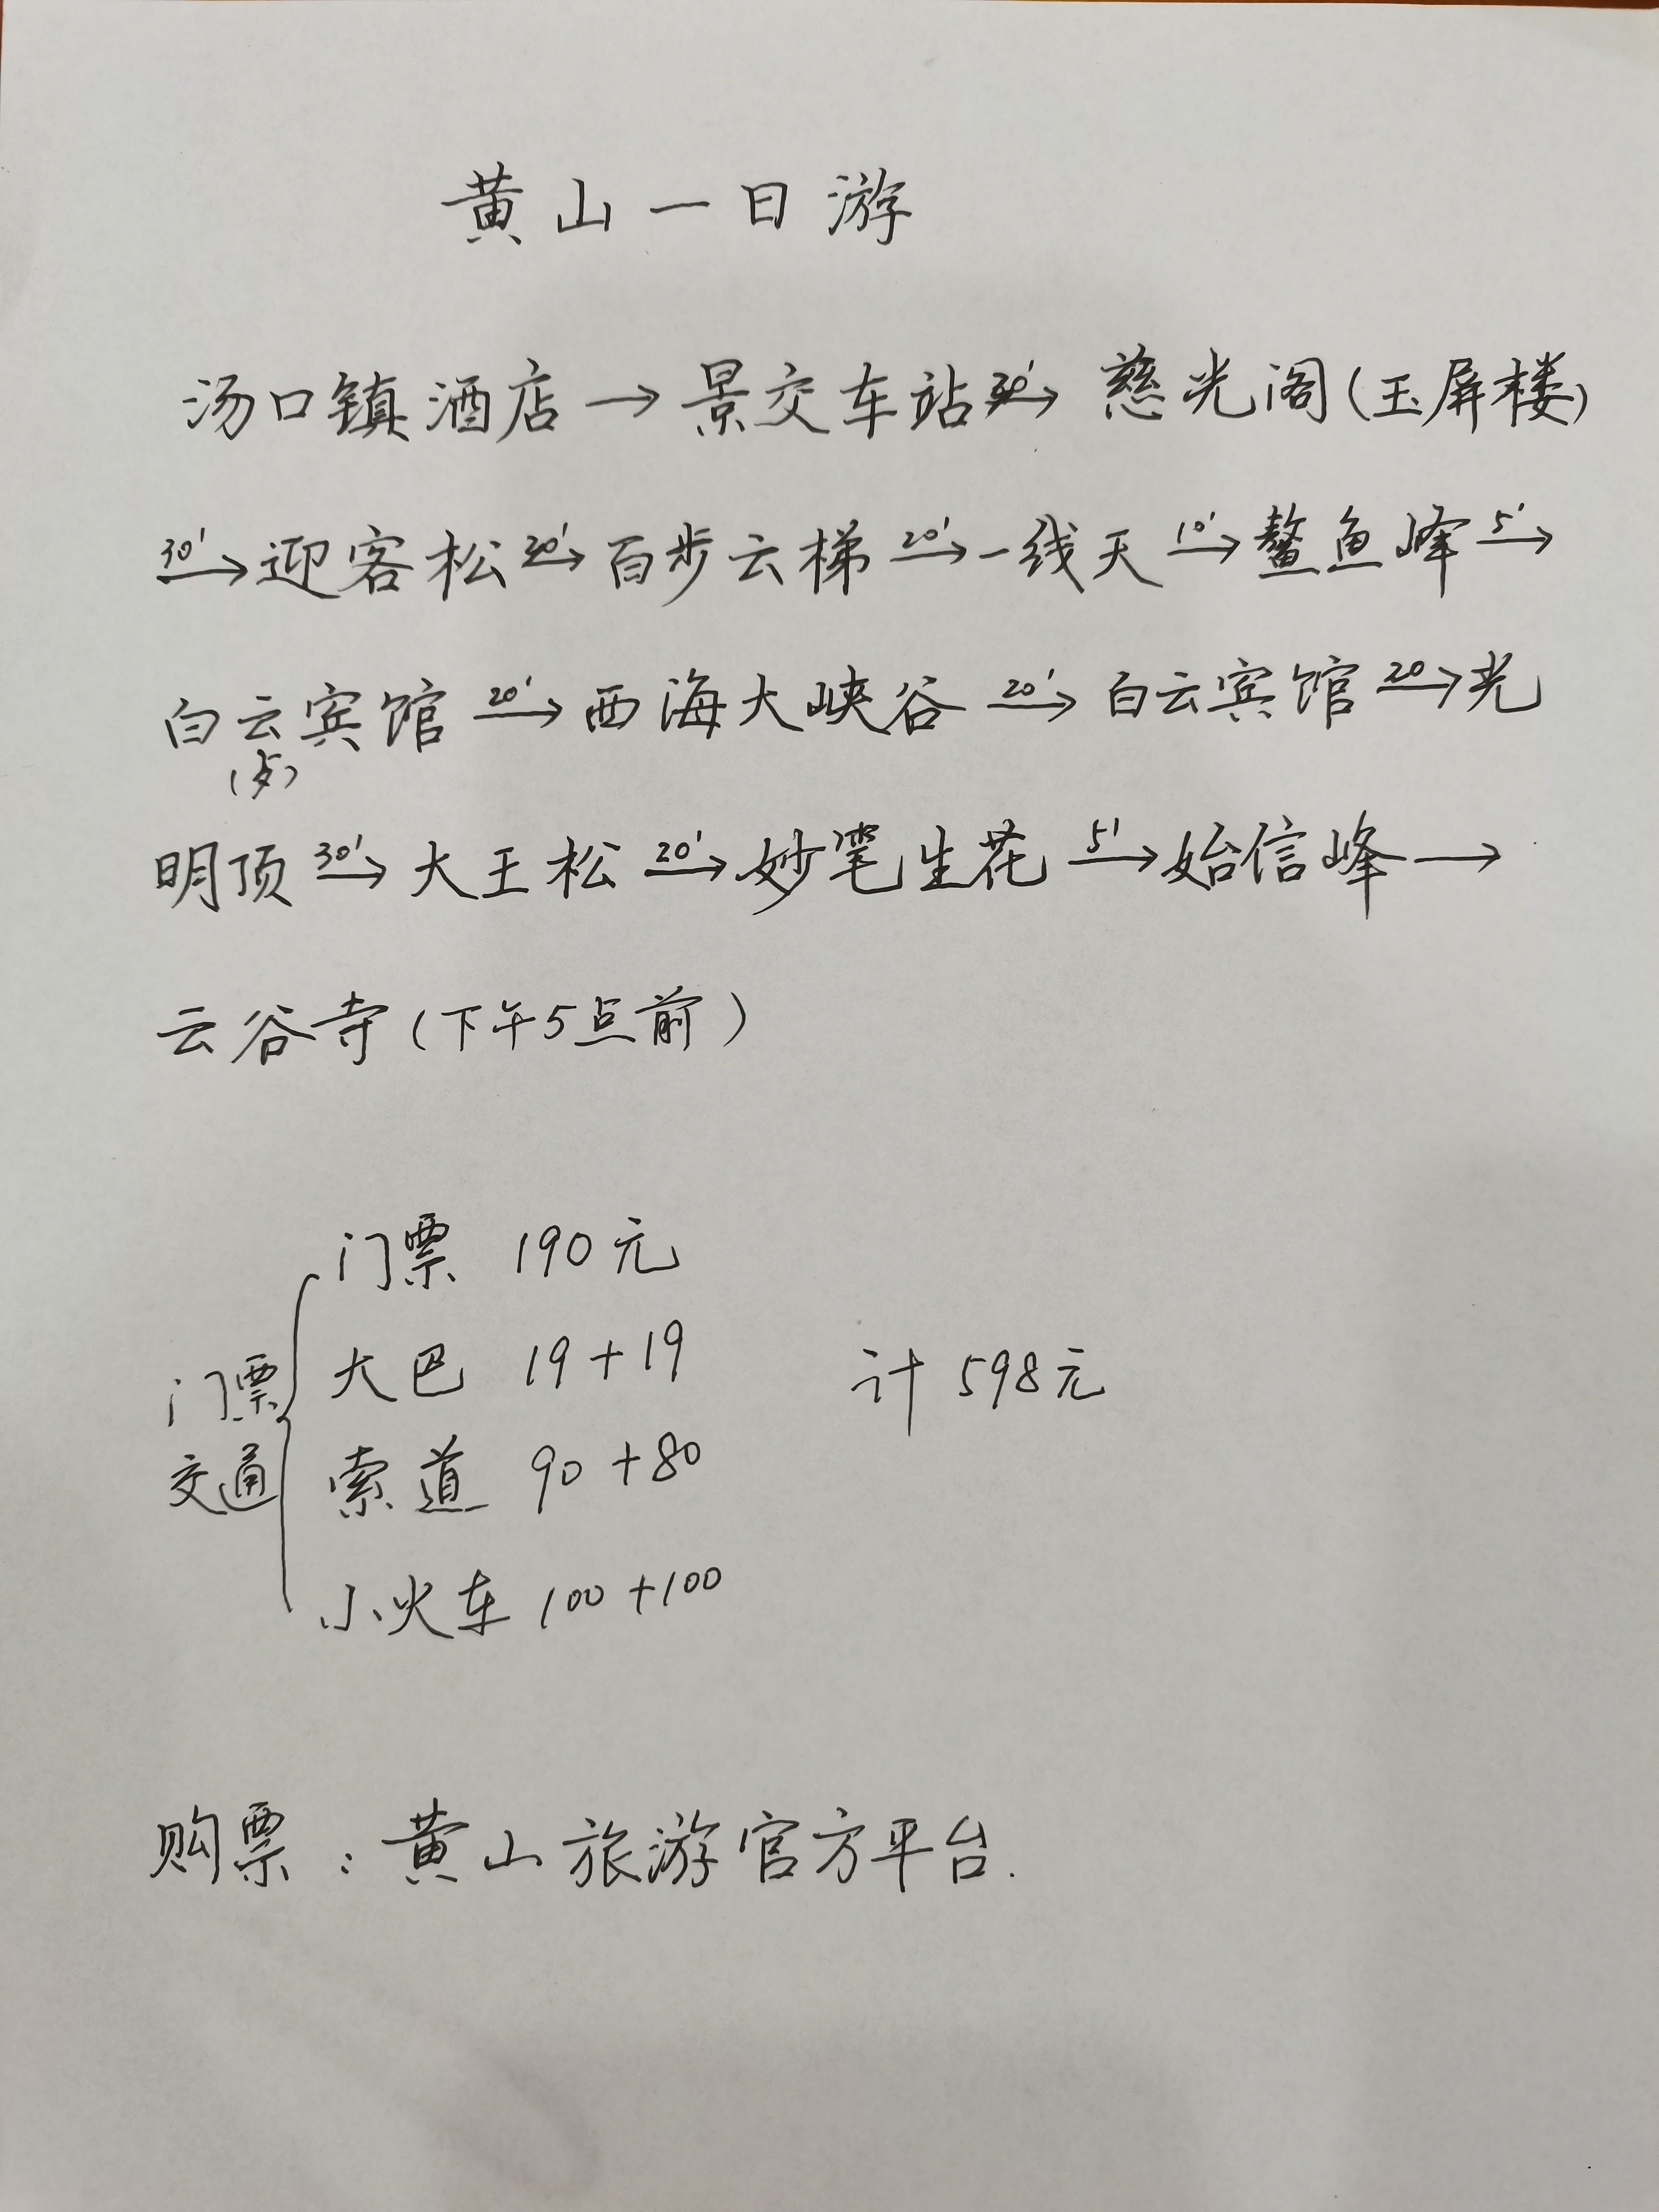 黄山一日游
汤口镇酒店→景交车站30'→慈光阁(玉屏楼)
30'→迎客松30'→百步云梯20'→一线天10'→鳌鱼峰5'→
白云宾馆20'→西海大峡谷20'→白云宾馆20→光
明顶30'→大王松20'→妙笔生花5'→始信峰→
云谷寺(下午5点前)
门票 190元
大巴 19+19
门票
计 598元
交通
索道 90+80
小火车 100+100
购票:黄山旅游官方平台.